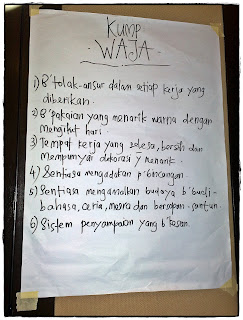 KUMP
WAJA
1) B'tolak-ansur dalam setiap kerja yang
diberikan.
2) B'pakaian yang menarik warna dengan
mengikut hari.
3) Tempat kerja yang selesa, bersih dan
mempunyai dekorasi y menarik.
4) Sentiasa mengadakan p'bincangan.
5) Sentiasa mengamalkan budaya b'budi-
bahasa, ceria, mesra dan bersopan-santun.
6) Sistem penyampaian yang b'kesan.